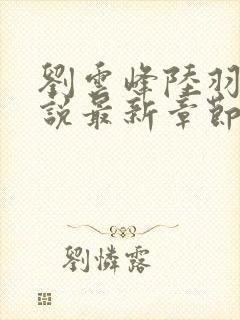 劉雲峰陸羽
說最新章節
劉憐露